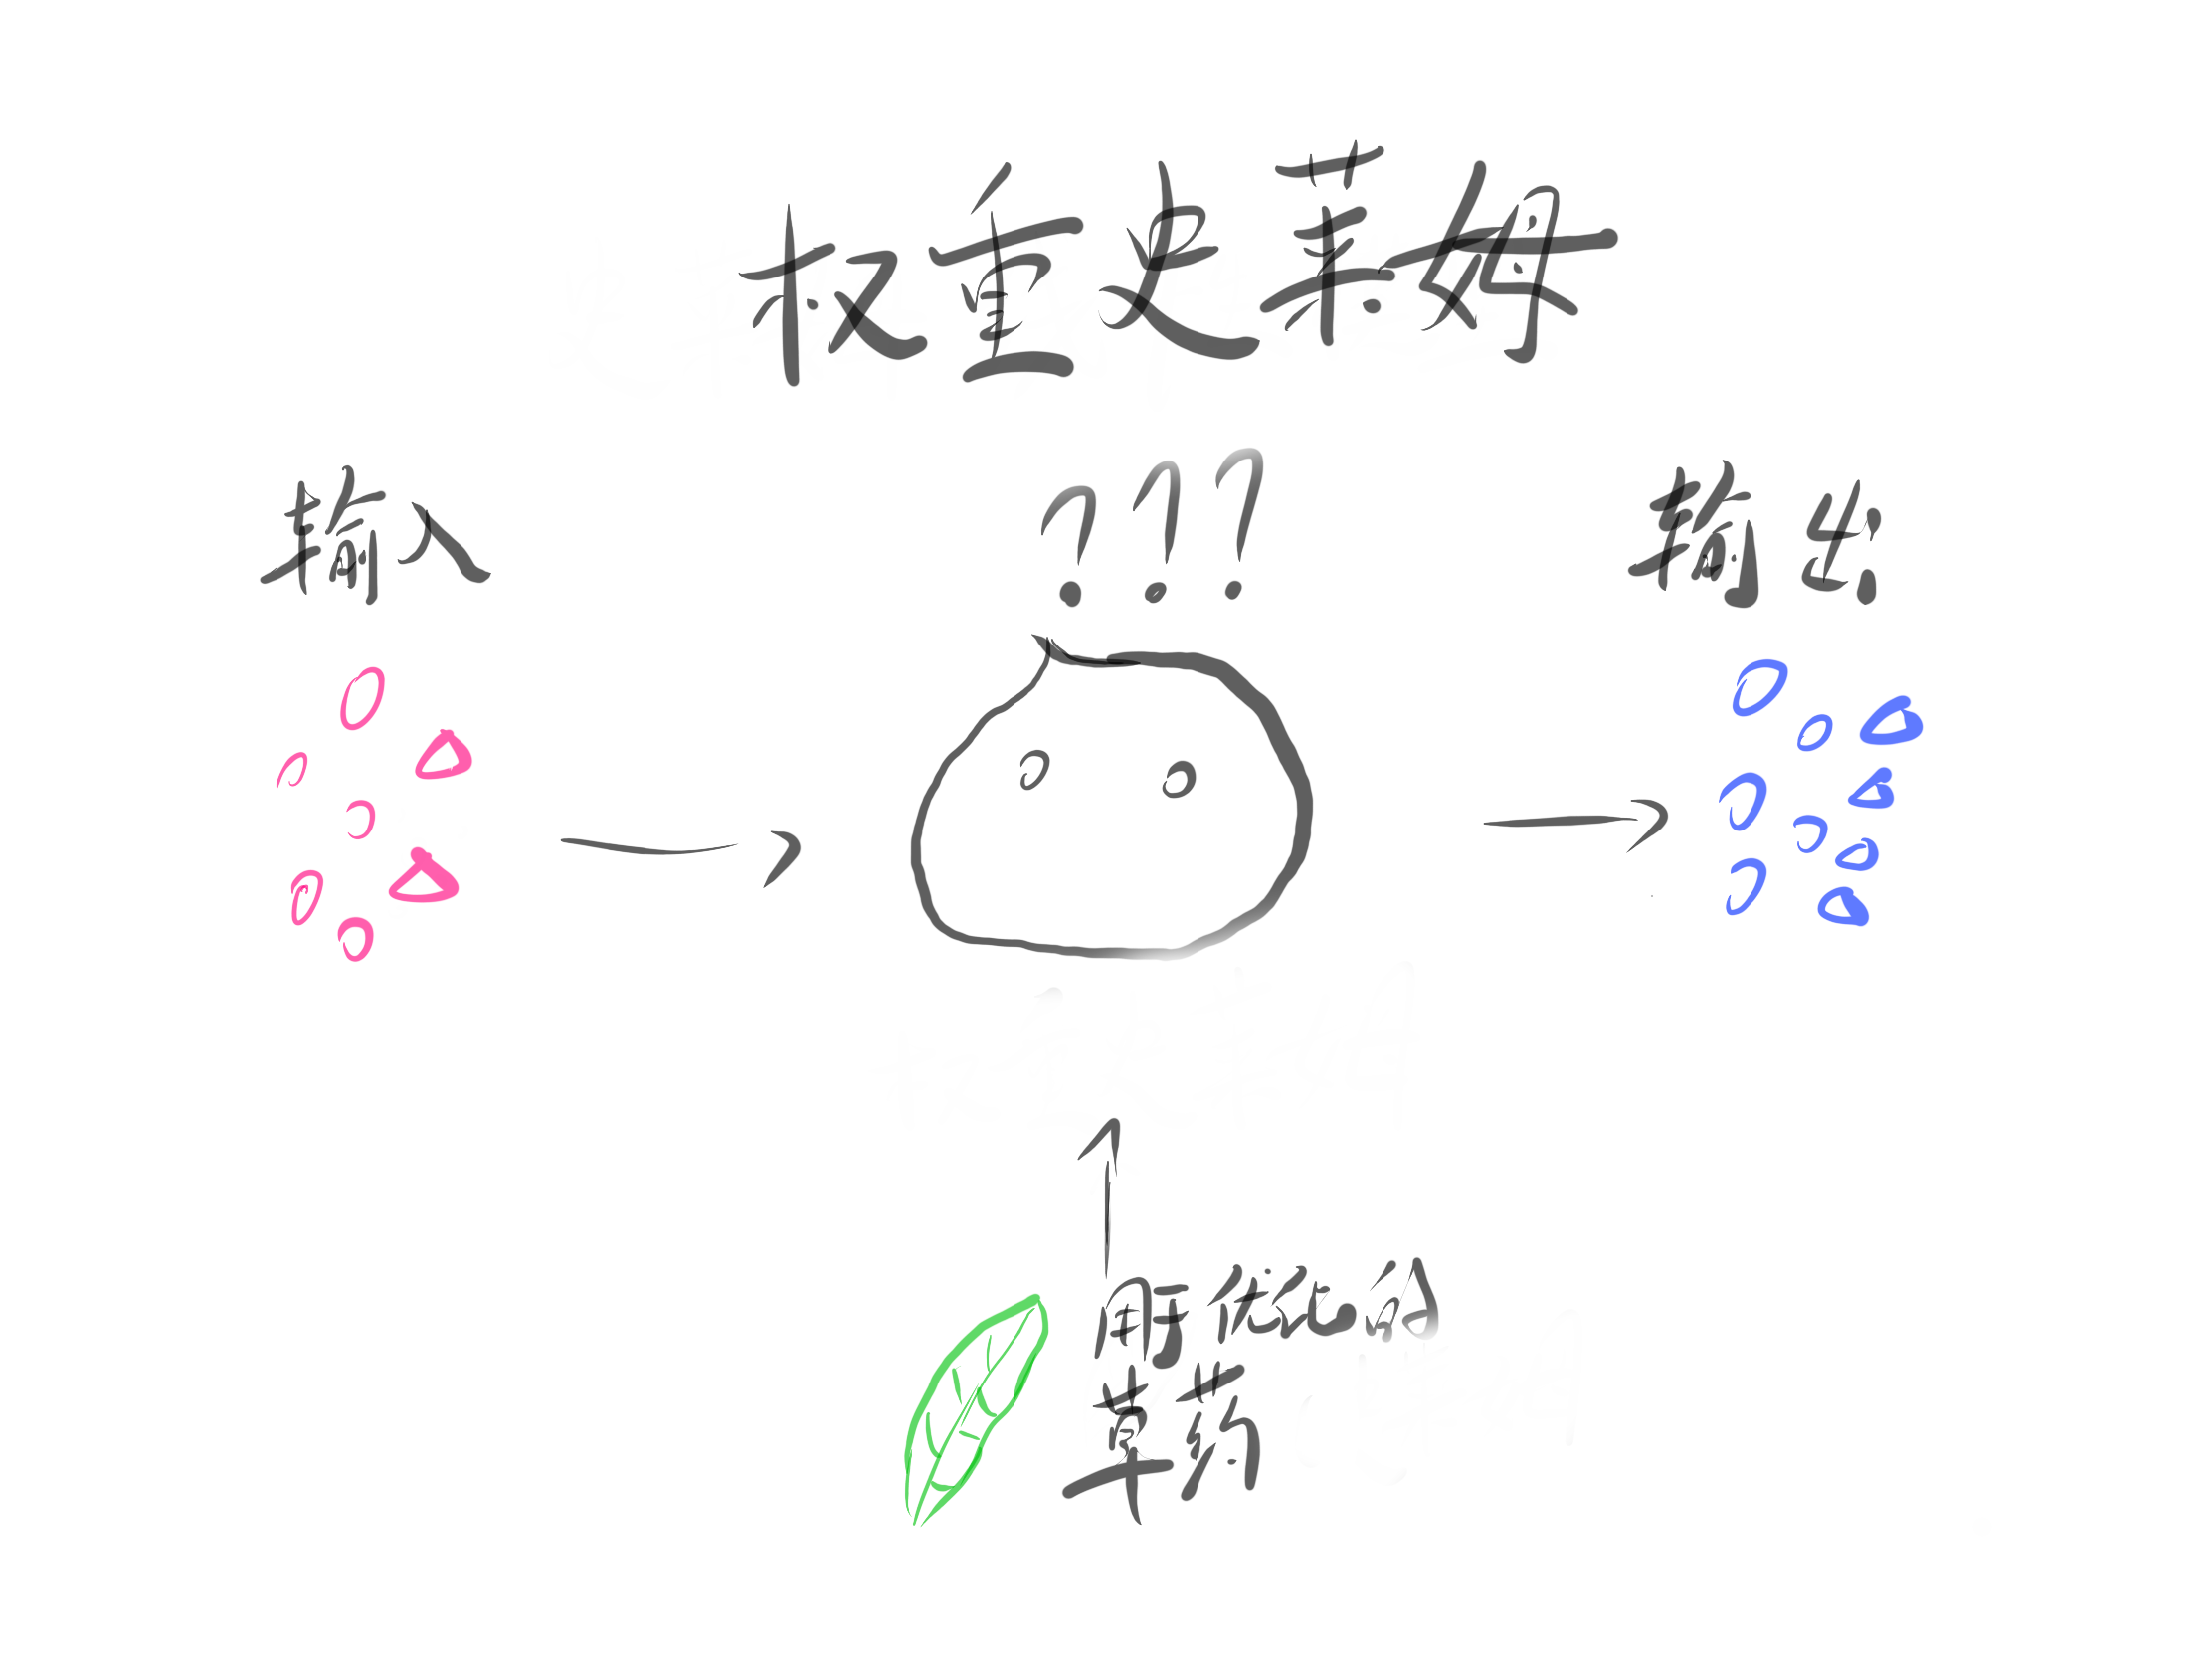 权重史莱姆
输入
???
输出
用于优化的
草药